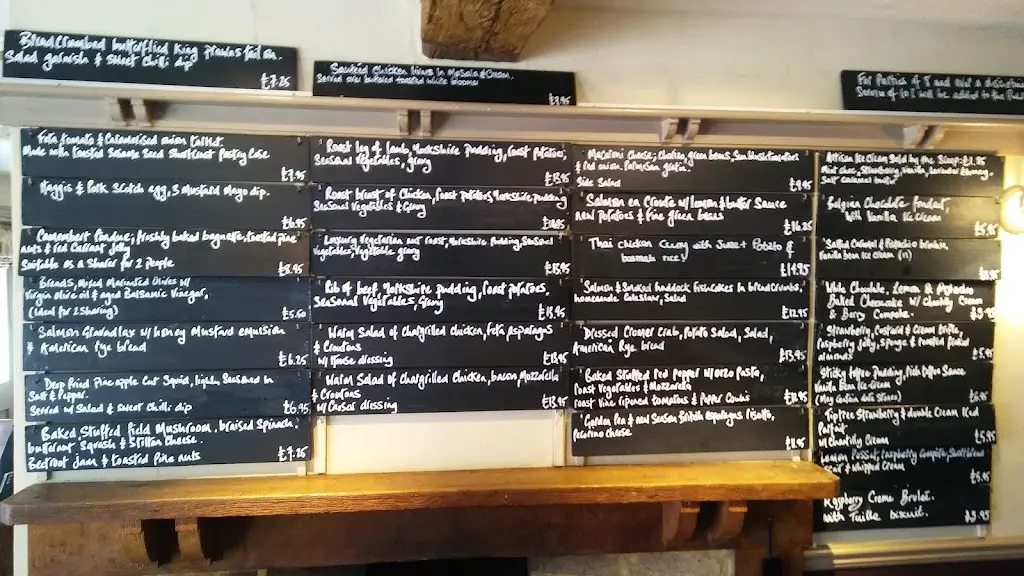 Breadcrumbed butterflied King Prawns tail on.
Salad garnish & Sweet Chilli dip
£7.25
Sauteed Chicken livers in Masala & Cream.
Served over buttered toasted white bloomer
£7.95
For Parties of 8 and over a discretionary
Service of 10% will be added to the
Feta, tomato & Caramelised onion tartlet.
Made with toasted Sesame Seed Shortcrust Pastry Case
£7.95
Haggis & Pork Scotch egg, 3 Mustard Mayo dip.
£6.95
Camembert Fondue; freshly baked baguette, toasted pine
nuts & red Currant Jelly
Suitable as a Sharer for 2 People
£8.95
Breads, Mixed Marinated Olives w/
Virgin Olive oil & aged Balsamic Vinegar,
(Ideal for 2 Sharing)
£5.50
Salmon Gravadlax w/ honey Mustard emulsion
& American rye bread
£6.25
Deep Fried Pineapple Cut Squid, lightly Seasoned in
Salt & Pepper.
Served w/ Salad & Sweet Chilli dip
£6.95
Baked, Stuffed Field Mushroom, braised Spinach,
butternut Squash & Stilton Cheese.
Beetroot Jam & toasted Pine nuts
£7.25
Roast leg of lamb, Yorkshire Pudding, roast potatoes,
Seasonal Vegetables, gravy
£13.95
Roast breast of Chicken, roast potatoes, Yorkshire pudding
Seasonal Vegetables & Gravy
Luxury Vegetarian nut roast, Yorkshire Pudding, Seasonal
vegetables, Vegetable gravy
£13.95
Rib of beef, Yorkshire pudding, roast potatoes,
Seasonal Vegetables, Gravy
£18.95
Warm Salad of Chargrilled Chicken, feta, Asparagus
& Croutons
w/ House dressing
£13.95
Warm Salad of Chargrilled Chicken, bacon, Mozzarella
& Croutons
w/ Caesar dressing
£13.95
Macaroni Cheese; Chorizo, green beans, Sunblush tomatoes
& red onion, Parmesan gratin.
Side Salad
£9.95
Salmon en Croute w/ lemon & butter Sauce
new Potatoes & fine green beans
£16.25
Thai chicken Curry with Sweet Potato &
basmati rice
£14.95
Salmon & Smoked haddock fishcakes in breadcrumbs,
homemade Coleslaw, Salad
£12.95
Dressed Cromer Crab, Potato Salad, Salad,
American Rye bread
£13.95
Baked Stuffed Red Pepper w/ orzo Pasta,
roast Vegetables & Mozzarella
roast Vine ripened tomatoes & Pepper Coulis
Garden Pea & new Season British asparagus risotto,
pecorino cheese
£11.95
Artisan Ice Cream Sold by the Scoop: £1.95
Mint choc, Strawberry, Vanilla, Lavender & honey,
Salt Caramel butter
Belgian Chocolate fondant,
with Vanilla Ice Cream
£5.95
Salted Caramel & Pistachio brownie,
Vanilla bean Ice Cream
£5.95
White Chocolate, Lemon & Pistachio
Baked Cheesecake w/ Chantilly Cream
& Berry Compote.
Strawberry, Custard & Cream trifle,
raspberry Jelly, Sponge & toasted flaked
almonds
£5.95
Sticky toffee Pudding, rich toffee Sauce
Vanilla bean Ice Cream
(May contain date Stones)
£6.95
Tiptree Strawberry & double Cream Iced
Parfait
w/ Chantilly Cream
£5.95
Lemon Posset, raspberry Compote, Shortbread
& Whipped Cream
£5.95
Raspberry Creme Brulee.
with Tuille biscuit.
£5.95